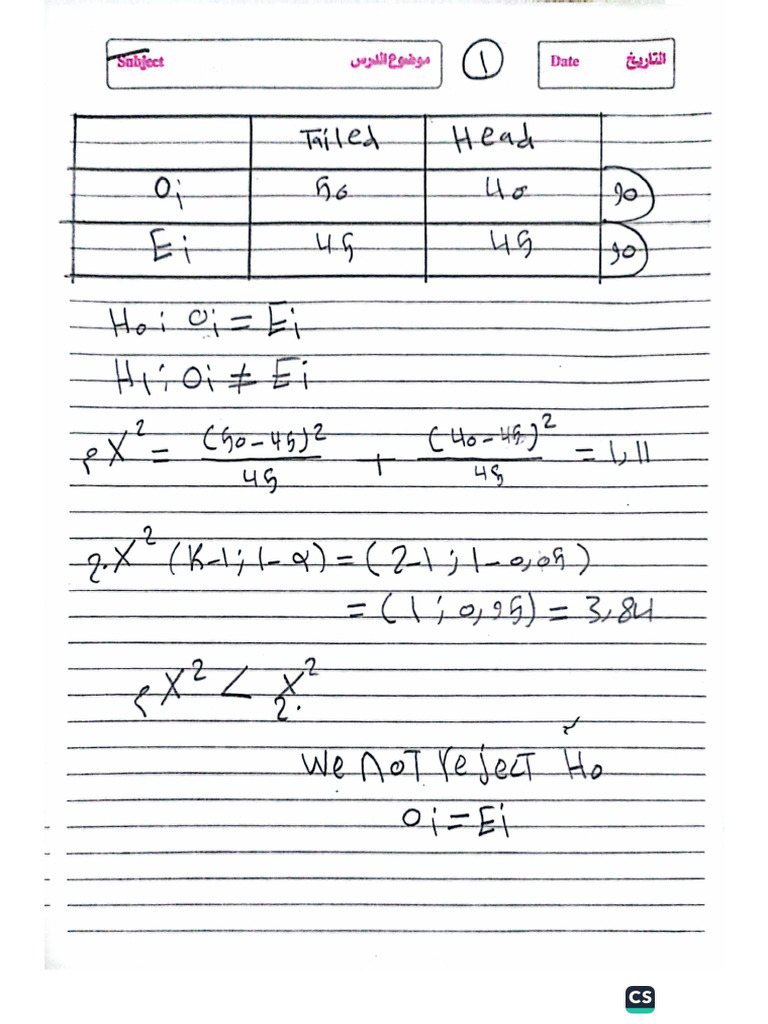 Subject موضوع الدرس ١ Date التاريخ
Tailed Head
Oi 50 40 90
Ei 45 45 90
H₀ ; Oi = Ei
H₁ ; Oi ≠ Ei
م X² = (50-45)²/45 + (40-45)²/45 = 1,11
ج. X² (K-1 ; 1-α) = (2-1 ; 1-0,05)
= (1 ; 0,95) = 3,84
م X² < X² ج.
we not reject H₀
Oi = Ei
CS